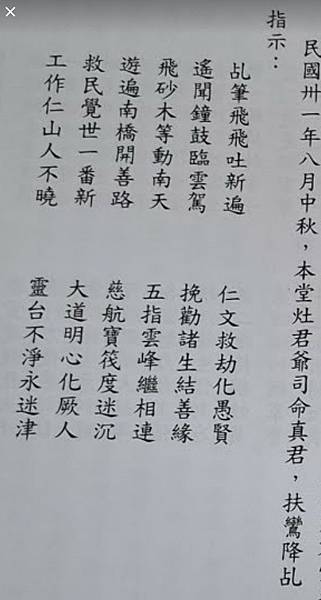 民國卅一年八月中秋，本堂灶君爺司命真君，扶鸞降乩
指示：
乩筆飛飛吐新遍　仁文救劫化愚賢
遙聞鐘鼓臨雲駕　挽勸諸生結善緣
飛砂木等動南天　五指雲峰繼相連
遊遍南橋開善路　慈航寶筏度迷沉
救民覺世一番新　大道明心化厥人
工作仁山人不曉　靈台不淨永迷津